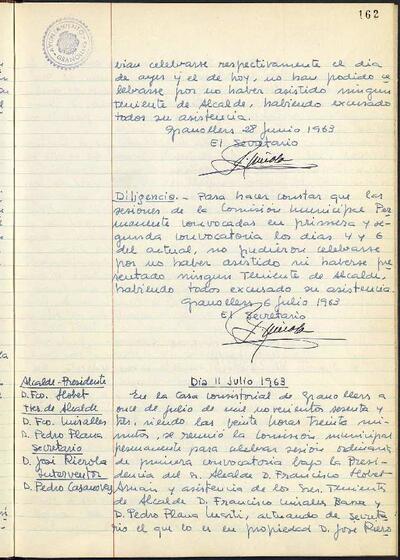 162
AYUNTAMIENTO
GRANOLLERS
vian celebrarse respectivamente el dia
de ayer y el de hoy, no han podido ce-
lebrarse por no haber asistido ningun
teniente de Alcalde, habiendo excusado
todos su asistencia.
Granollers 28 junio 1963
El Secretario
Diligencia.- Para hacer constar que las
sesiones de la Comisión Municipal Per
manente convocadas en primera y se-
gunda convocatoria los dias 4 y
del actual, no pudieron celebrarse
por no haber asistido ni haberse pre
sentado ningun Teniente de Alcalde,
habiendo todos excusado su asistencia.
Granollers 6 julio 1963
El Secretario
Alcalde-Presidente
D. Fco. Llobet
Ttes. de Alcalde
D. Fco. Miralles
D. Pedro Plana
Secretario
D. José Rierola
Interventor
D. Pedro Casanovas
Dia 11 Julio 1963
En la Casa Consistorial de Granollers a
once de julio de mil novecientos sesenta y
tres, siendo las veinte horas treinta mi-
nutos, se reunió la Comisión Municipal
permanente para celebrar sesión ordinaria
de primera convocatoria bajo la Presi-
dencia del Sr. Alcalde D. Francisco Llobet
y asistencia de los Sres. Tenientes
de Alcalde D. Francisco Miralles y
D. Pedro Plana, actuando de Secreta
rio el que lo es en propiedad D. José Riero